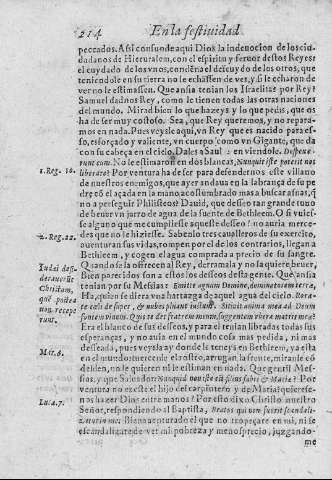 214 En la festiuidad
peccados. Assi confunde aqui Dios la indeuocion de los ciu-
dadanos de Hierusalem, con el espiritu y feruor destos Reyes:
el cuydado de los vnos, condéna el descuydo de los otros, que
teniendole en su tierra no le echassen de ver, y si le echaron de
ver no le estimassen. Que ansia tenian los Israelitas por Rey?
Samuel dadnos Rey, como le tienen todas las otras naciones
del mundo. Mirad bien lo que hazeys y lo que pedis, que os
ha de ser muy costoso. Sea, que Rey queremos, y no repara-
mos en nada. Pues veysle aqui, vn Rey que es nacido para es-
so, esforçado y valiente, vn cuerpo como vn Gigante, que da
con su cabeça en el cielo. Dales a Saul: en viendole. Despexe-
runt eum. No le estimaron en dos blancas, Nunquid iste poterit nos
1. Reg. 10.
liberare? Por ventura ha de ser para defendernos este villano
de nuestros enemigos, que ayer andaua en la labrança de su pa
dre con el açada en la mano acostumbrado mas a buscar asnas, q̃
no a perseguir Philisteos? Dauid, que desseo tan grande tuuo
de beuer vn jarro de agua de la fuente de Bethleem? O si vuies-
se alguno que me cumpliesse aqueste desseo! no auria merce-
des que no le hiziesse. Sabenlo tres caualleros de su exercito,
2. Reg. 22.
auenturan sus vidas, rompen por el de los contrarios, llegan a
Bethleem, y cogen el agua comprada a precio de su sangre.
Quando se la offrecen al Rey, derramala y no la quiere beuer.
Iudai desi-
derauerunt
Christum,
quẽ postea
non recepe
runt.
Bien parecidos son a estos los desseos desta gente. Que ansia
tenian por su Messias: Emitte agnum Domine, dominatorem terræ,
Ha, quien se diera vna hartazga de aquel agua del cielo. Rora-
te cæli de super, & nubes pluant iustum. Sitiuit anima mea ad Deum
fontem viuum. Quis te det fratrem meum, suggentem vbera matris meæ?
Era el blanco de sus desseos, y para el tenian libradas todas sus
esperanças, y no auia en el mundo cosa mas pedida, ni mas
desseada, pues veysla ay donde le teneys en Bethleem, ya esta
en el mundo: torcenle el rostro, arrugan la frente, miranle cõ
desden, no le quieren ni le estiman en nada. Que gentil Mes-
Mar. 6.
sias, y que Saluador: Nunquid non iste est filius fabri & Mariæ? Por
ventura no es este el hijo del carpintero y de Maria: querers-
nos hazer Dios entre manos? Por esto dixo Christo nuestro
Luc. 7.
Señor, respondiendo al Baptista, Beatus qui non fuerit scandali-
zatus in me. Bienauenturado el que no tropeçare en mi, ni se
escandalizare de ver mi pobreza y menosprecio, juzgando-
me